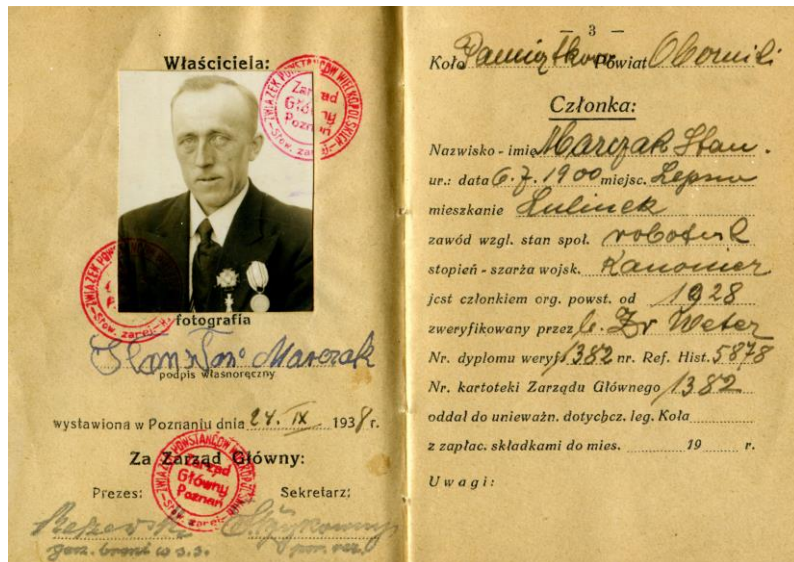 Właściciela:
ZWIĄZEK POWSTAŃCÓW WIELKOPOLSKICH
Zarząd
Główny
Poznań
Stow. zarej.
fotografia
Stanisław Marczak
podpis własnoręczny
wystawiona w Poznaniu dnia 24. IX 1938 r.
Za Zarząd Główny:
Zarząd
Główny
Poznań
Prezes: Sekretarz:
gen. broni w s.s. por. rez.
— 3 —
Koło Pamiątkowo Powiat Oborniki
Członka:
Nazwisko - imię Marczak Stan.
ur.: data 6.7.1900 miejsc.
mieszkanie Lulinek
zawód wzgl. stan społ. robotnik
stopień - szarża wojsk. Kanonier
jest członkiem org. powst. od 1928
zweryfikowany przez b. Zw Weter
Nr. dyplomu weryf. 1382 nr. Ref. Hist. 5878
Nr. kartoteki Zarządu Głównego 1382
oddał do unieważn. dotychcz. leg. Koła
z zapłac. składkami do mies. 19 r.
Uwagi: